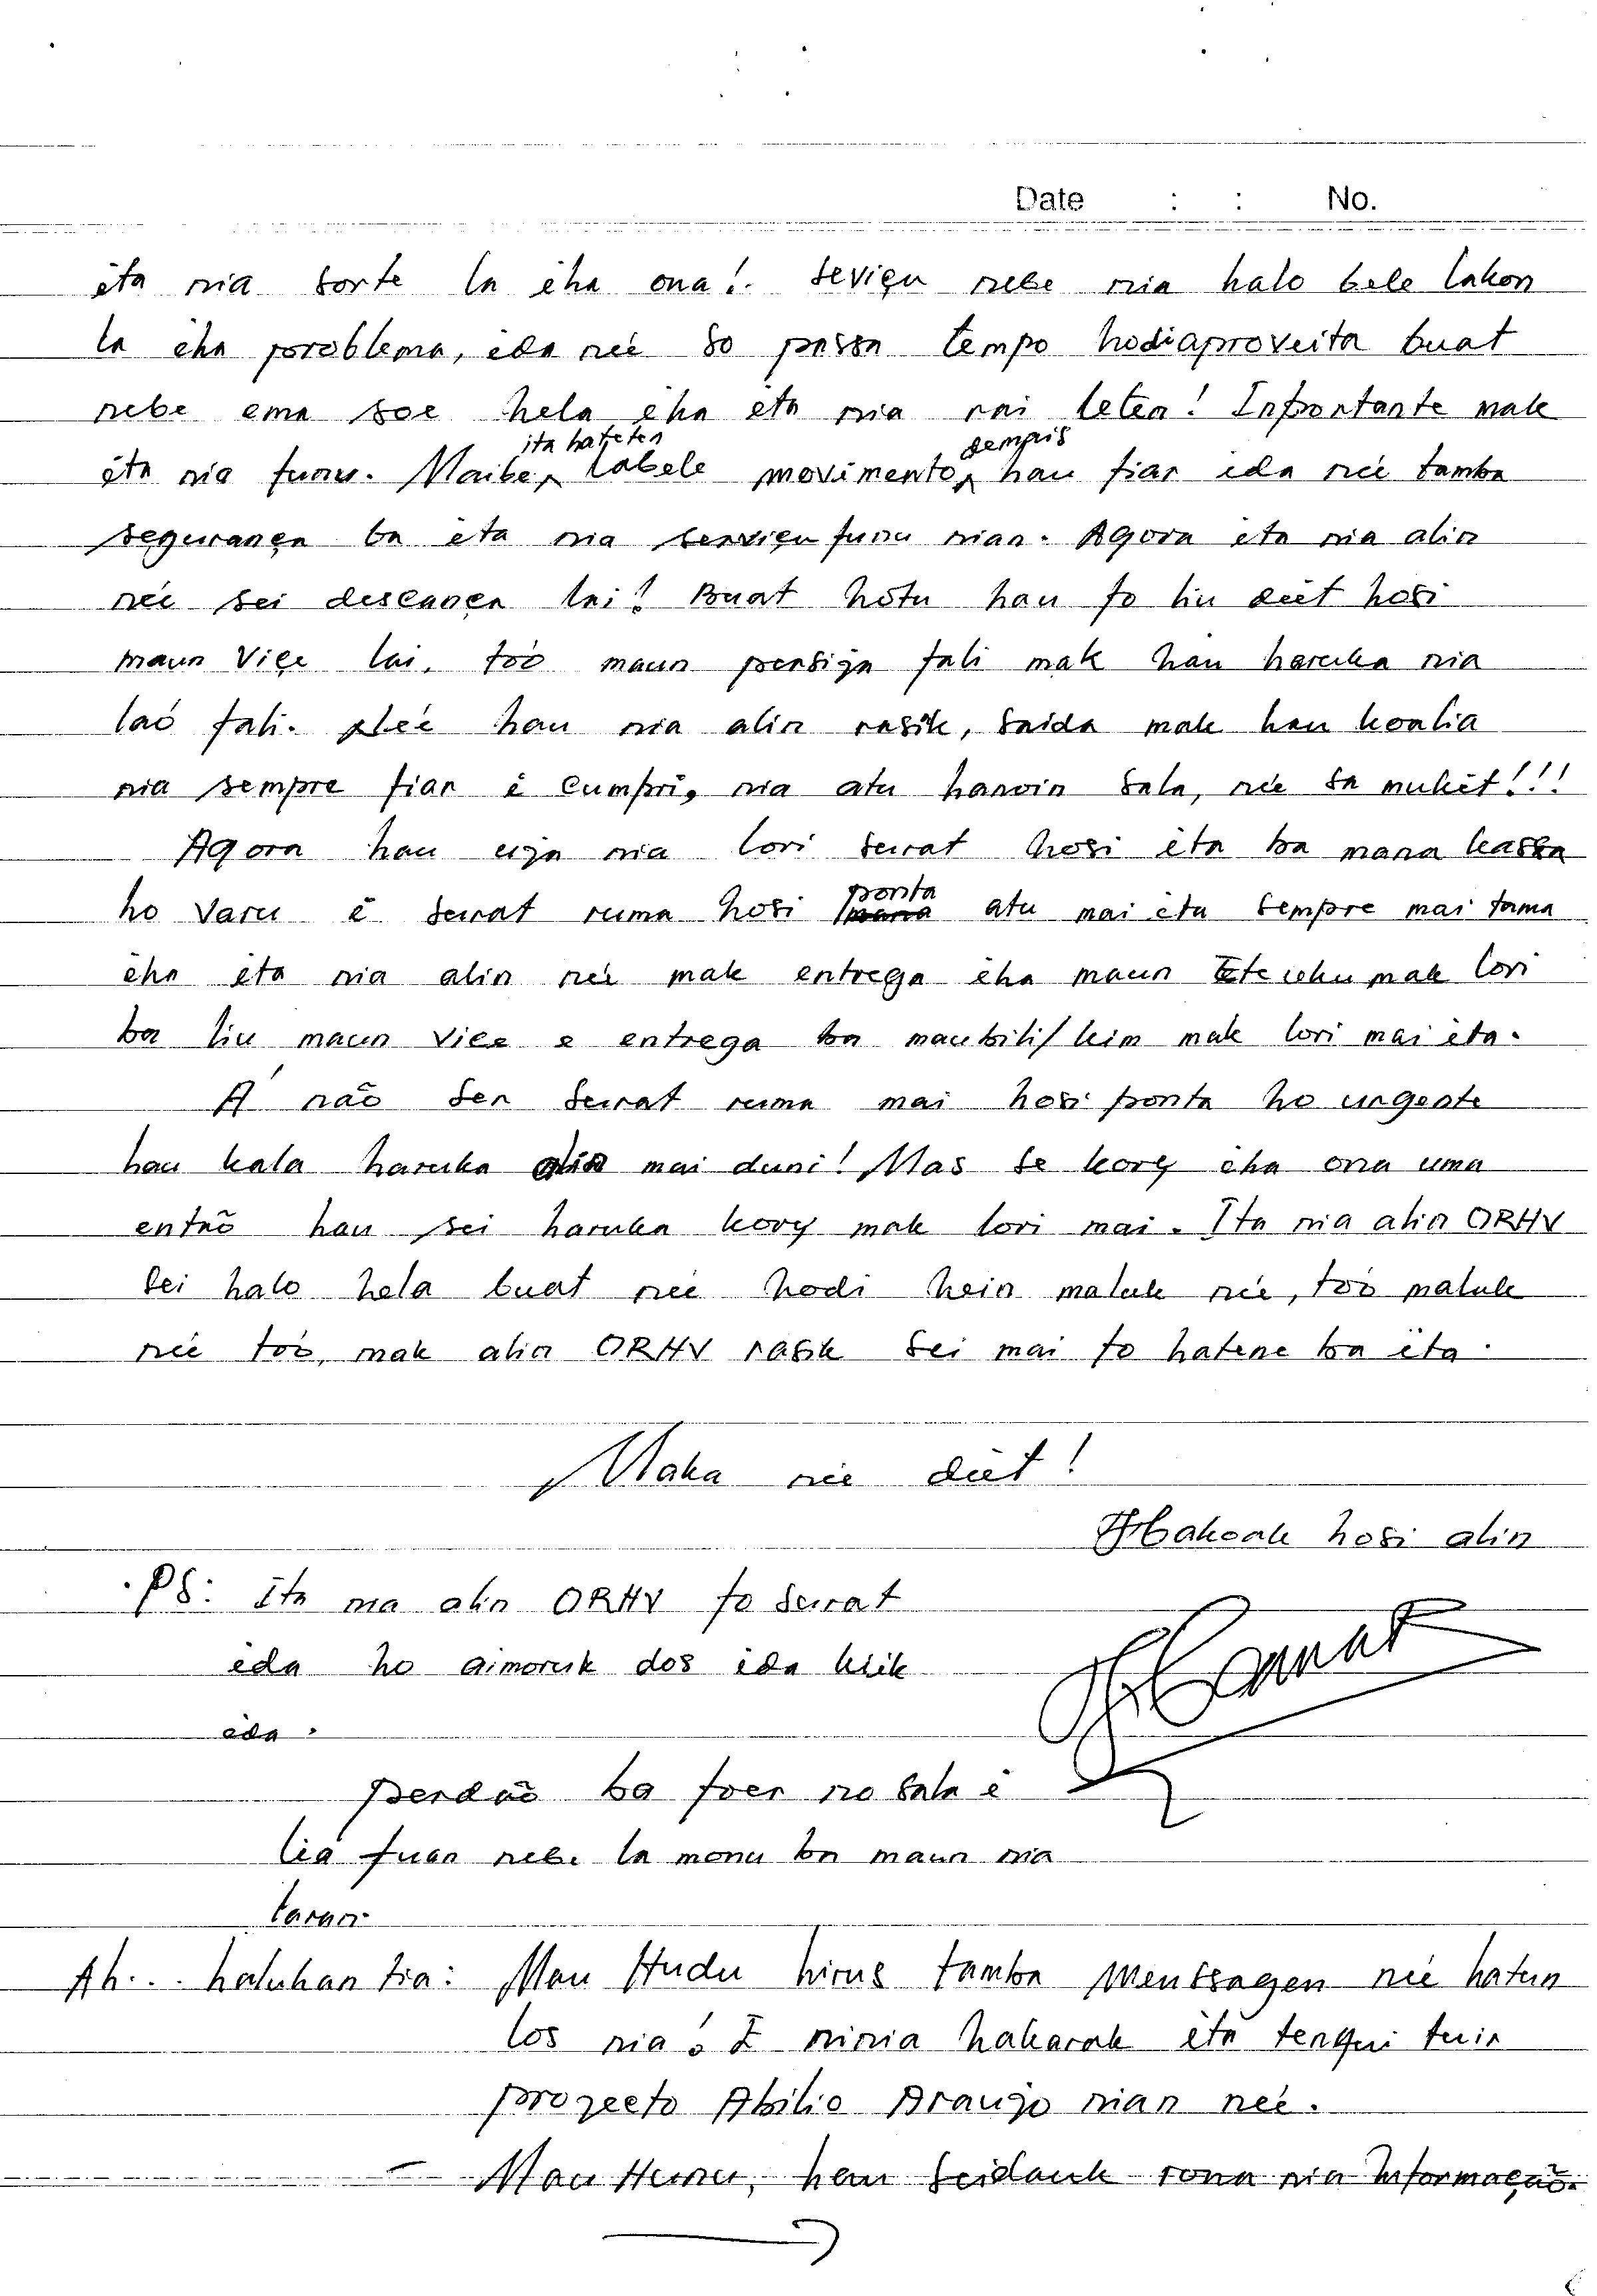 Date : : No.
ita nia sorte la iha ona! Serviçu nebe nia halo bele lakon
la iha problema, ida neé so passa tempo hodi aproveita buat
nebe ema soe hela iha ita nia rai leten! Inportante mak
ita nia funu. Maibe, ita hateten labele movimento sempris, hau fiar ida neé tamba
segurança ba ita nia serviçu funu nian. Agora ita nia alin
neé sei descança lai! Buat hotu hau fo liu deit hosi
maun Vice lai, toó maun persiza fali mak hau haruka nia
laó fali. Neé hau nia alin rasik, saida mak hau koalia
nia sempre fiar é cumpri, nia atu hanoin sala, neé la mukit!!!
Agora hau uza nia lori surat hosi ita ba mana kassa
ho Varu é surat ruma hosi ponta atu mai ita sempre mai tama
iha ita nia alin neé mak entrega iha maun Eteuku mak lori
ba liu maun Vice e entrega ba maubili/keim mak lori mai ita.
A naó ser surat ruma mai hosi ponta ho urgente
hau kala haruka mai duni! Mas se kory iha ona uma
entaõ hau sei haruka kory mak lori mai. Ita nia alin ORHV
sei halo hela buat neé hodi hein maluk neé, toó maluk
neé toó, mak alin ORHV rasik sei mai fo hatene ba ita.
Maka neé deit!
Hakoak hosi alin
PS: Ita nia alin ORHV fo surat
ida ho aimoruk dos ida klik
ida.
perdaõ ba foer no sala é
lia fuan nebe la monu ba maun nia
laran.
Ah... haluhan tia: Mau Hudu hirus tamba menssagen neé hatun
los nia. I ninia hakarak ita tenqui tuir
prozecto Abilio Araujo nian neé.
- Mau Hunu, hau seidauk rona nia Informaçaõ.